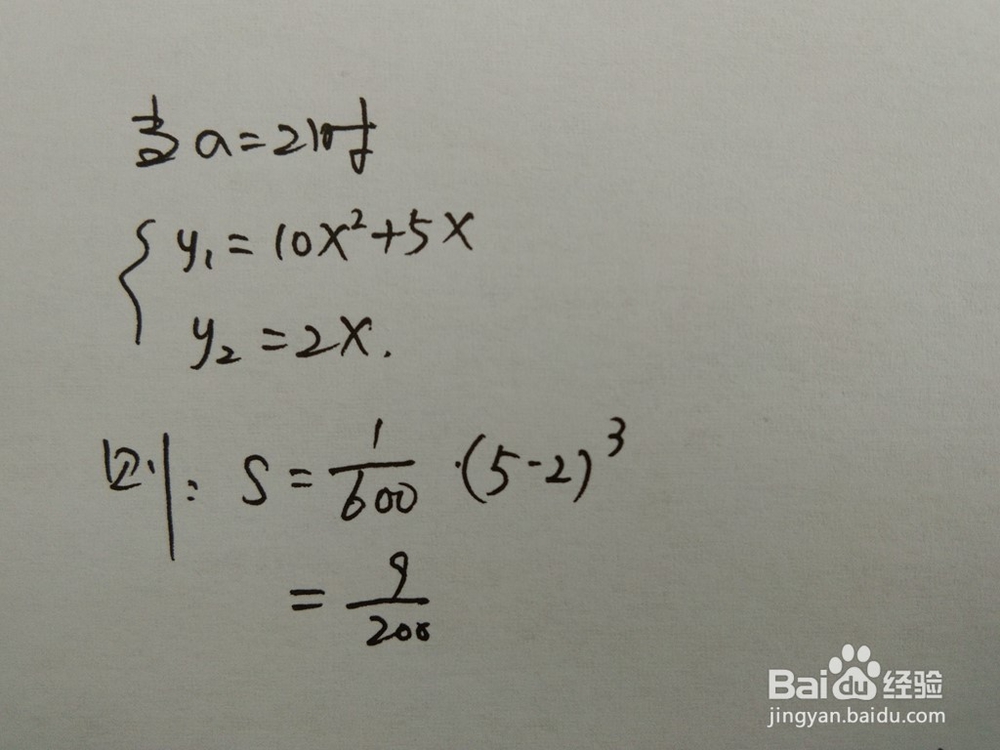 当a=2时
y₁=10x²+5x
y₂=2x.
则: S=1/600·(5-2)³
=9/200
Baidu经验
jingyan.baidu.com